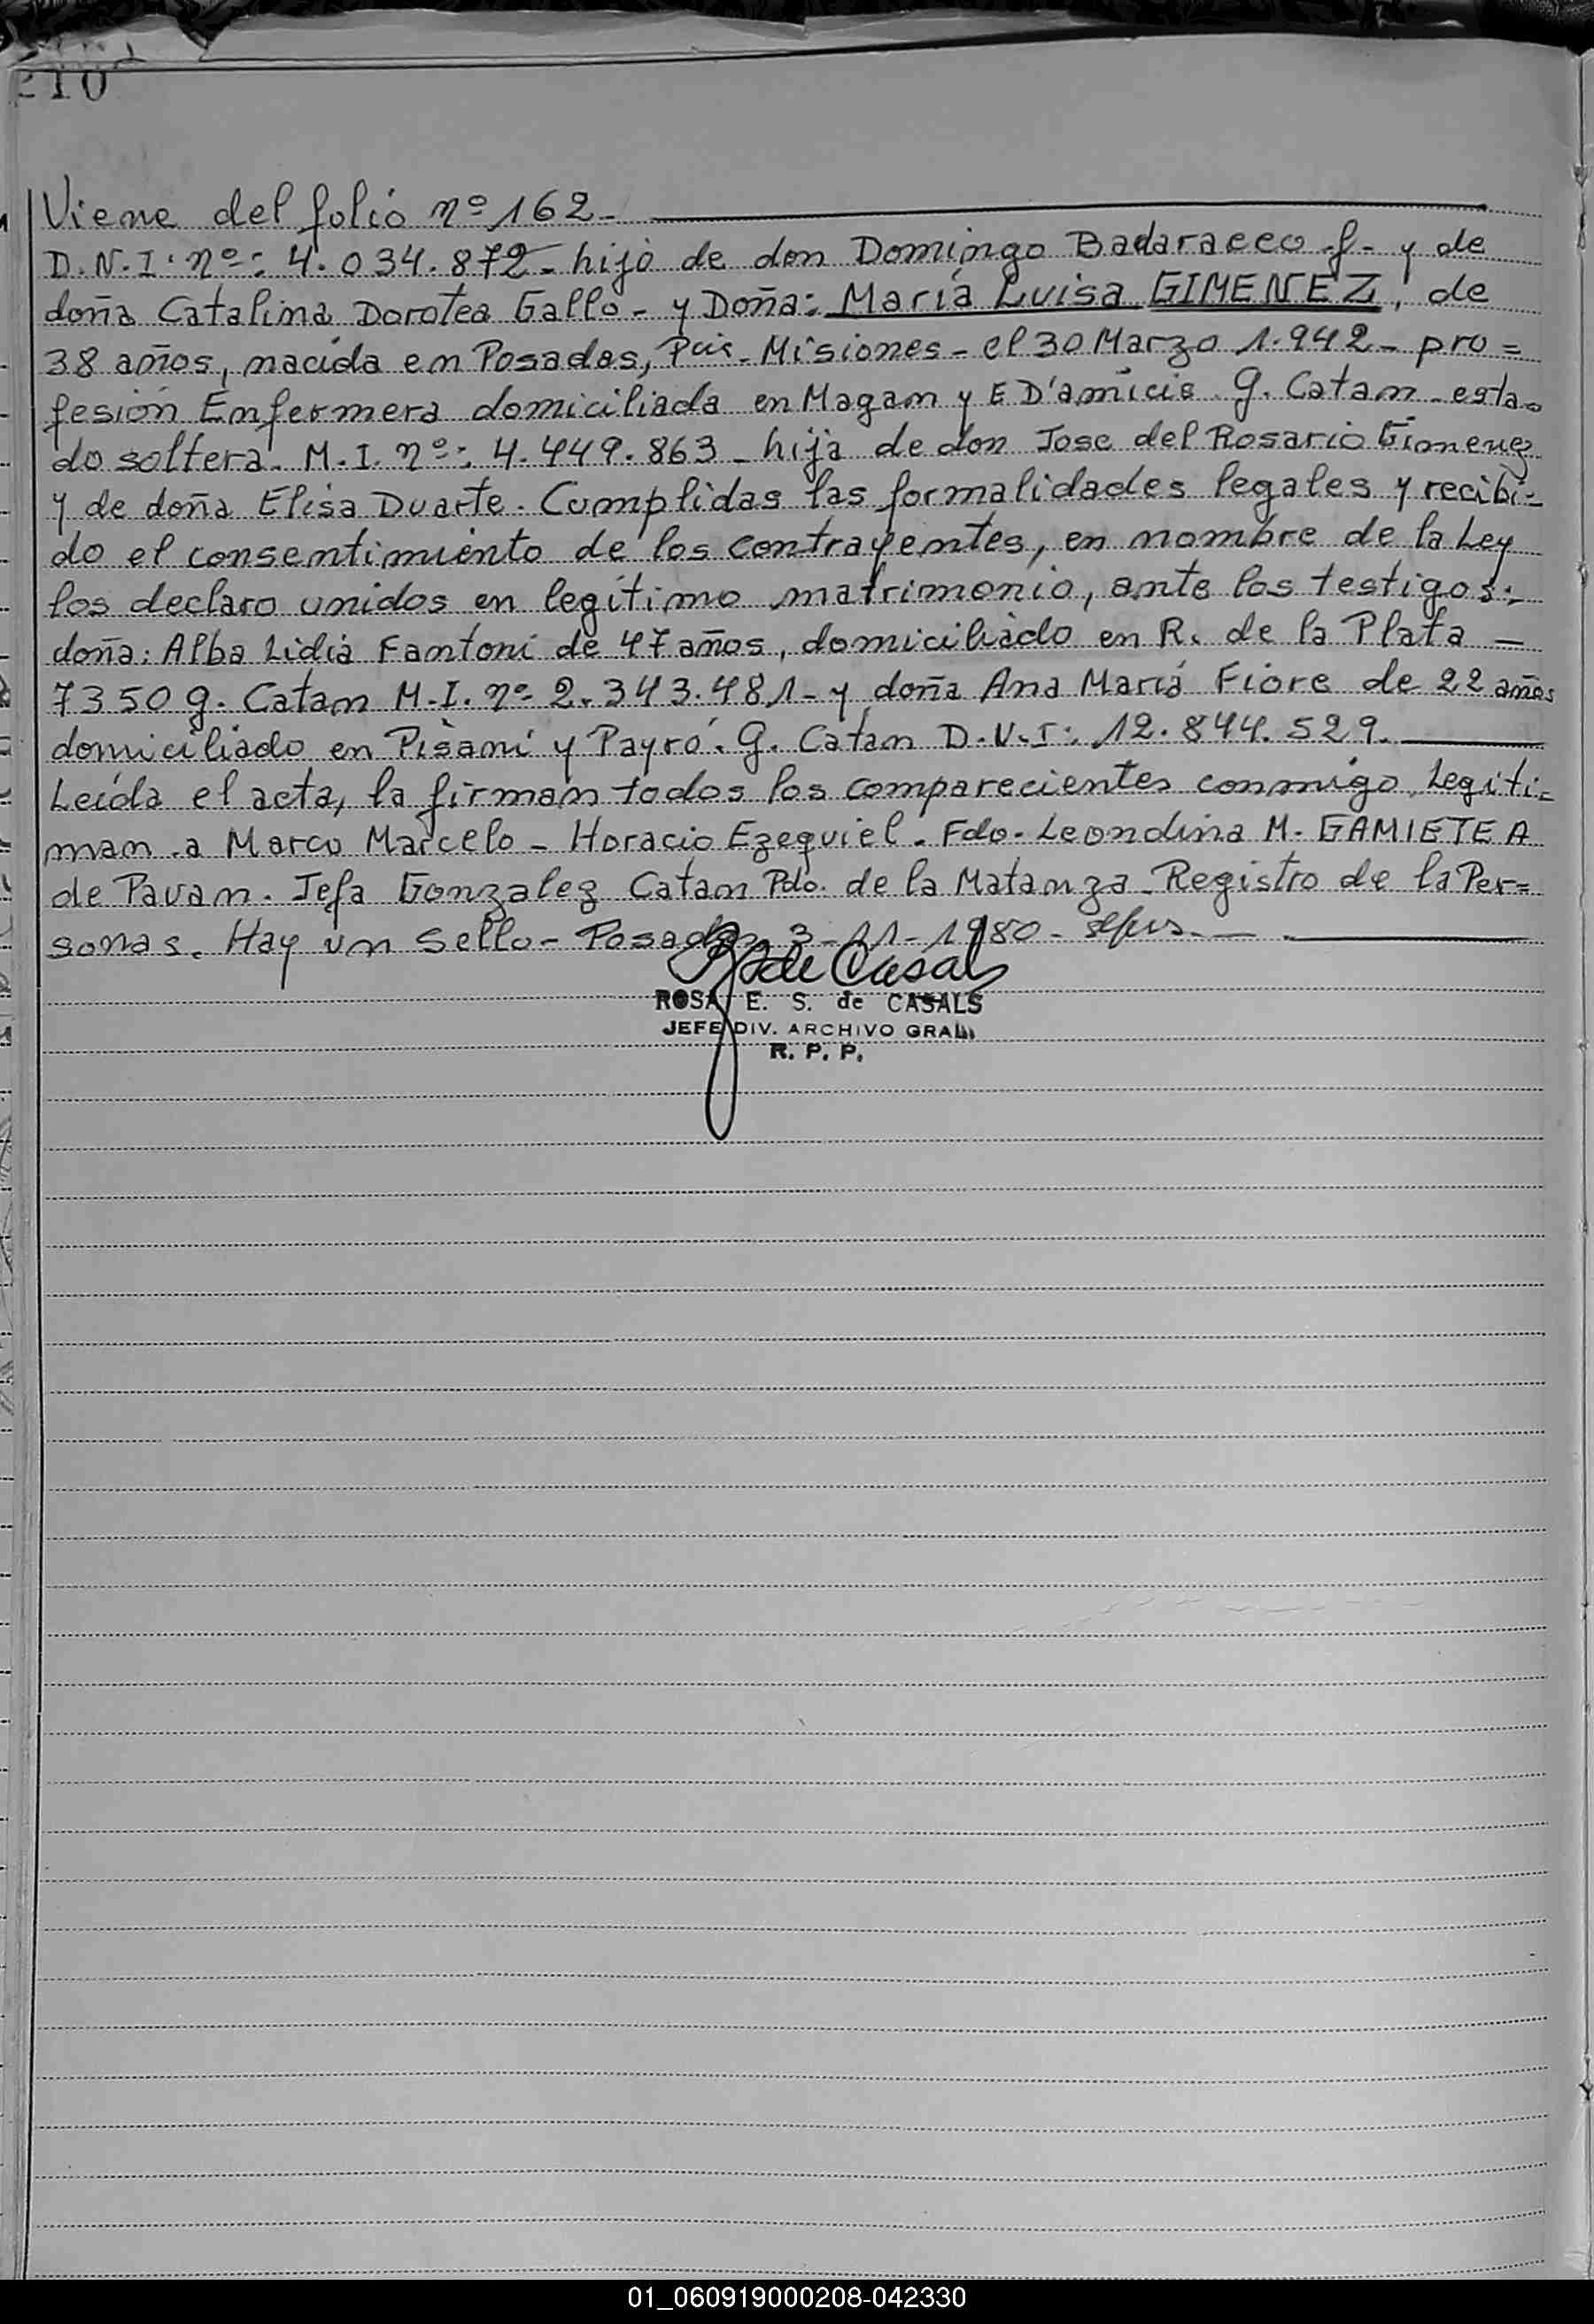 210
Viene del folio nº 162-
D.N.I. nº: 4.034.872- hijo de don Domingo Badaracco f- y de
doña Catalina Dorotea Gallo- y Doña: María Luisa GIMENEZ, de
38 años, nacida en Posadas, Pcia- Misiones- el 30 Marzo 1.942- pro=
fesión Enfermera domiciliada en Magam y E D'amicis G. Catam- esta-
do soltera. M.I. nº: 4.449.863- hija de don Jose del Rosario Gimenez
y de doña Elisa Duarte. Cumplidas las formalidades legales y recibi-
do el consentimiento de los contrayentes, en nombre de la Ley
los declaro unidos en legítimo matrimonio, ante los testigos:
doña: Alba Lidia Fantoni de 47 años, domiciliado en R. de la Plata -
7350 G. Catam M.I. nº 2.343.481- y doña Ana María Fiore de 22 años
domiciliado en Pisani y Payró. G. Catan D.N.I: 12.844.529.
Leída el acta, la firman todos los comparecientes conmigo. Legiti-
man a Marco Marcelo- Horacio Ezequiel. Fdo- Leondina M. GAMIETEA
de Pavan. Jefa Gonzalez Catan Pdo. de la Matanza- Registro de la Per=
sonas. Hay un Sello- Posadas 3-11-1980-
R de Casals
ROSA E. S. de CASALS
JEFE DIV. ARCHIVO GRAL.
R. P. P.
01_060919000208-042330